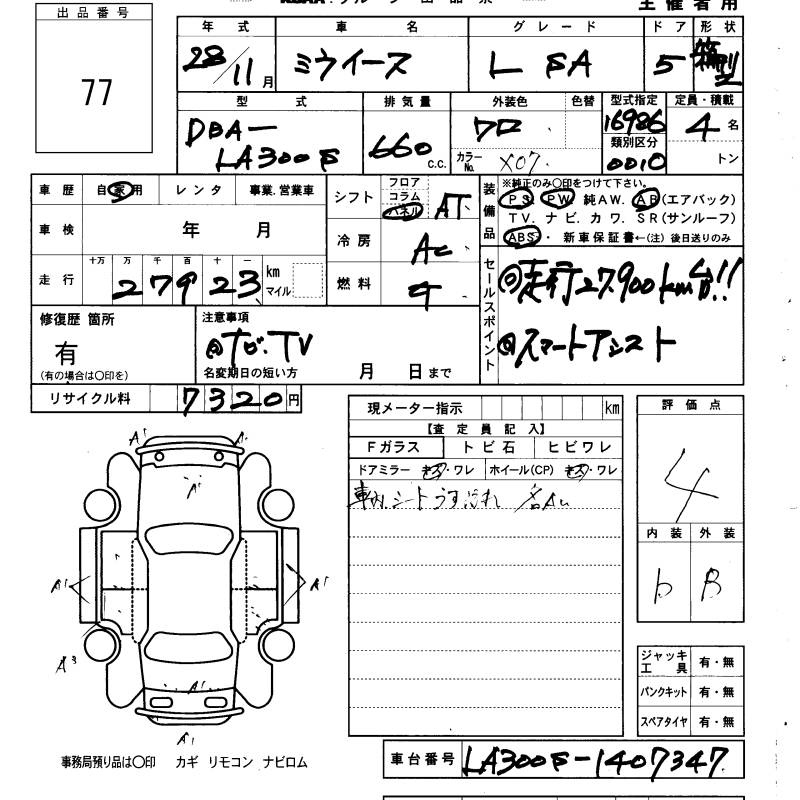 主催者用
出品番号
77
年式 車名 グレード ドア 形状
28/11月 ミライース L SA 5 箱型
型式 排気量 外装色 色替 型式指定 定員・積載
DBA-LA300S 660c.c. クロ 16986 4名
カラーNo. X07 類別区分 0010 トン
車歴 自家用 レンタ 事業.営業車
車検 年 月
走行 十万 万 千 百 十 一 km マイル
27923
シフト フロア コラム パネル AT
冷房 AC
燃料 ガ
装備品 ※純正のみ〇印をつけて下さい。
PS PW 純AW. AB(エアバック)
TV. ナビ. カワ. SR(サンルーフ)
ABS・ 新車保証書←(注) 後日送りのみ
セールスポイント
◎走行27.900km台!!
◎スマートアシスト
修復歴 箇所
有
(有の場合は〇印を)
注意事項
ナビ.TV
名変期日の短い方 月 日まで
リサイクル料 7320円
現メーター指示 km
【査定員記入】
Fガラス トビ石 ヒビワレ
ドアミラー キズ・ワレ ホイール(CP) キズ・ワレ
車内.シートうす汚れ
評価点
4
内装 外装
b B
A1 A1
A1
A1 A1
A3
A1
A1
ジャッキ工具 有・無
パンクキット 有・無
スペアタイヤ 有・無
事務局預り品は〇印 カギ リモコン ナビロム
車台番号 LA300S-1407347